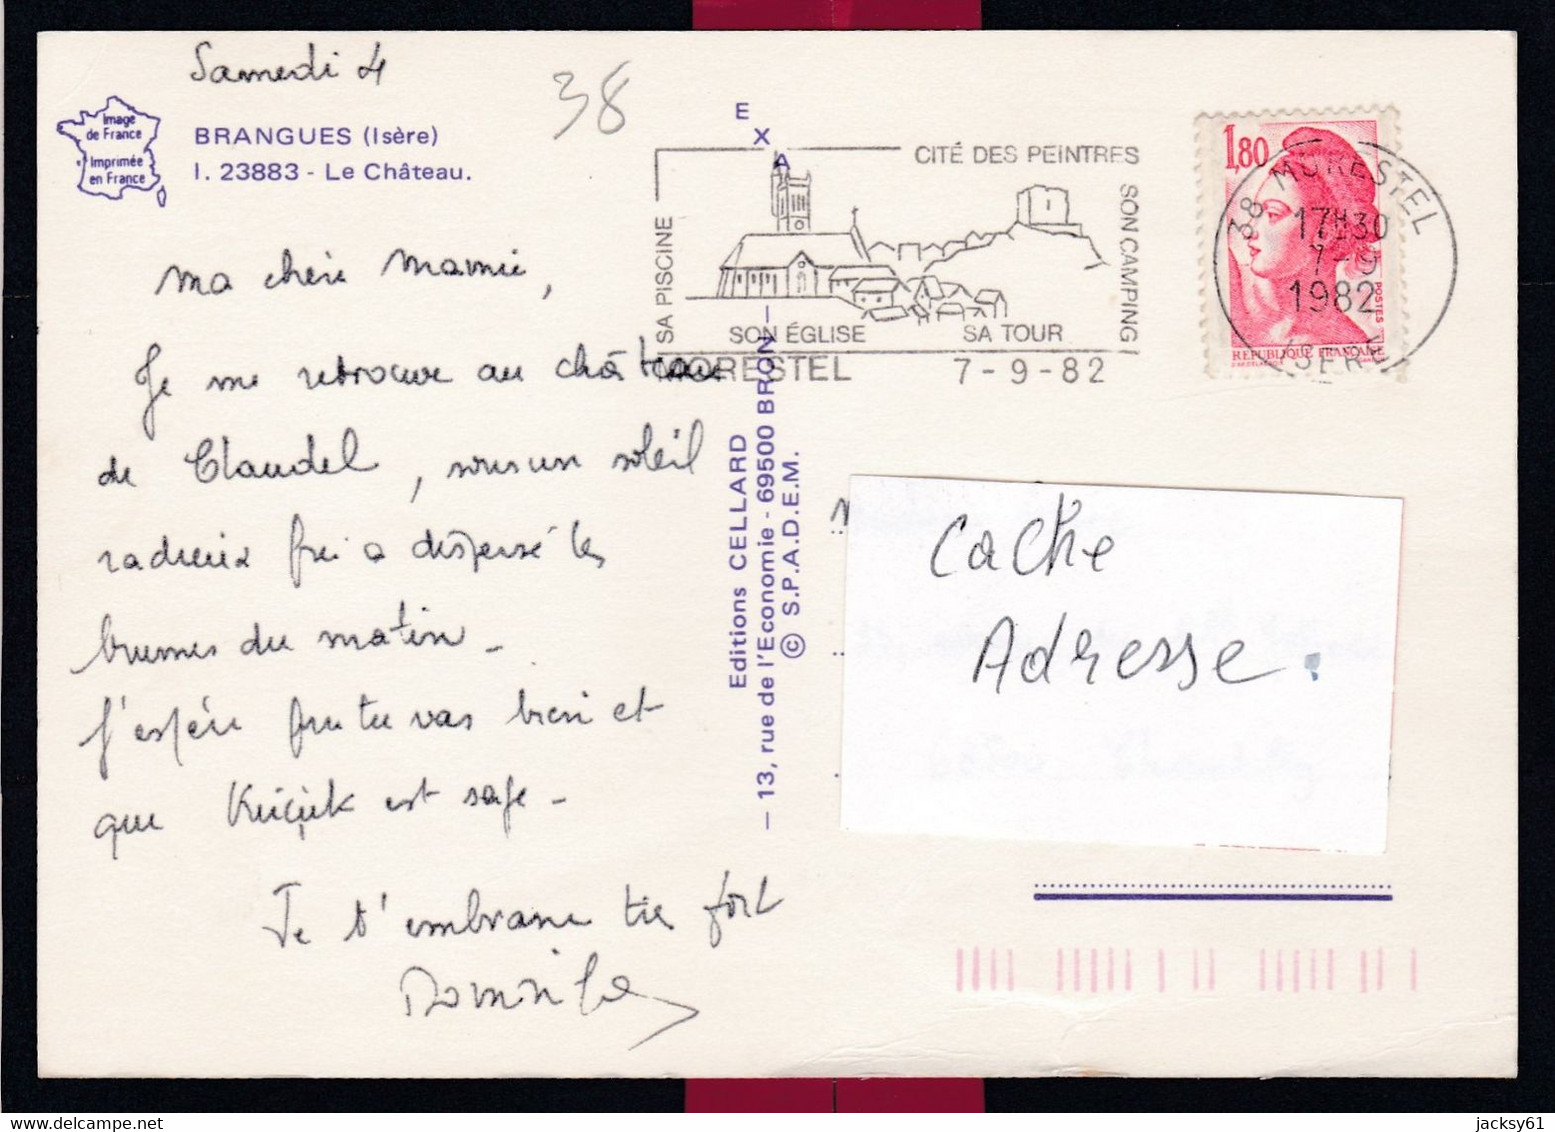 Samedi 4
38
Image
de France
Imprimée
en France
BRANGUES (Isère)
I. 23883 - Le Château.
Ma chère Mamie,
Je me retrouve au château
de Claudel, sous un soleil
radieux qui a dispersé les
brumes du matin -
J'espère que tu vas bien et
que Küçük est sage -
Je t'embrasse très fort
EXA
Editions CELLARD
— 13, rue de l'Economie - 69500 BRON —
© S.P.A.D.E.M.
CITÉ DES PEINTRES
SA PISCINE
SON CAMPING
SON ÉGLISE
SA TOUR
MORESTEL 7-9-82
1,80
POSTES
REPUBLIQUE FRANÇAISE
38 MORESTEL
17H30
7-9
1982
ISERE
Cache
Adresse.
jacksy61